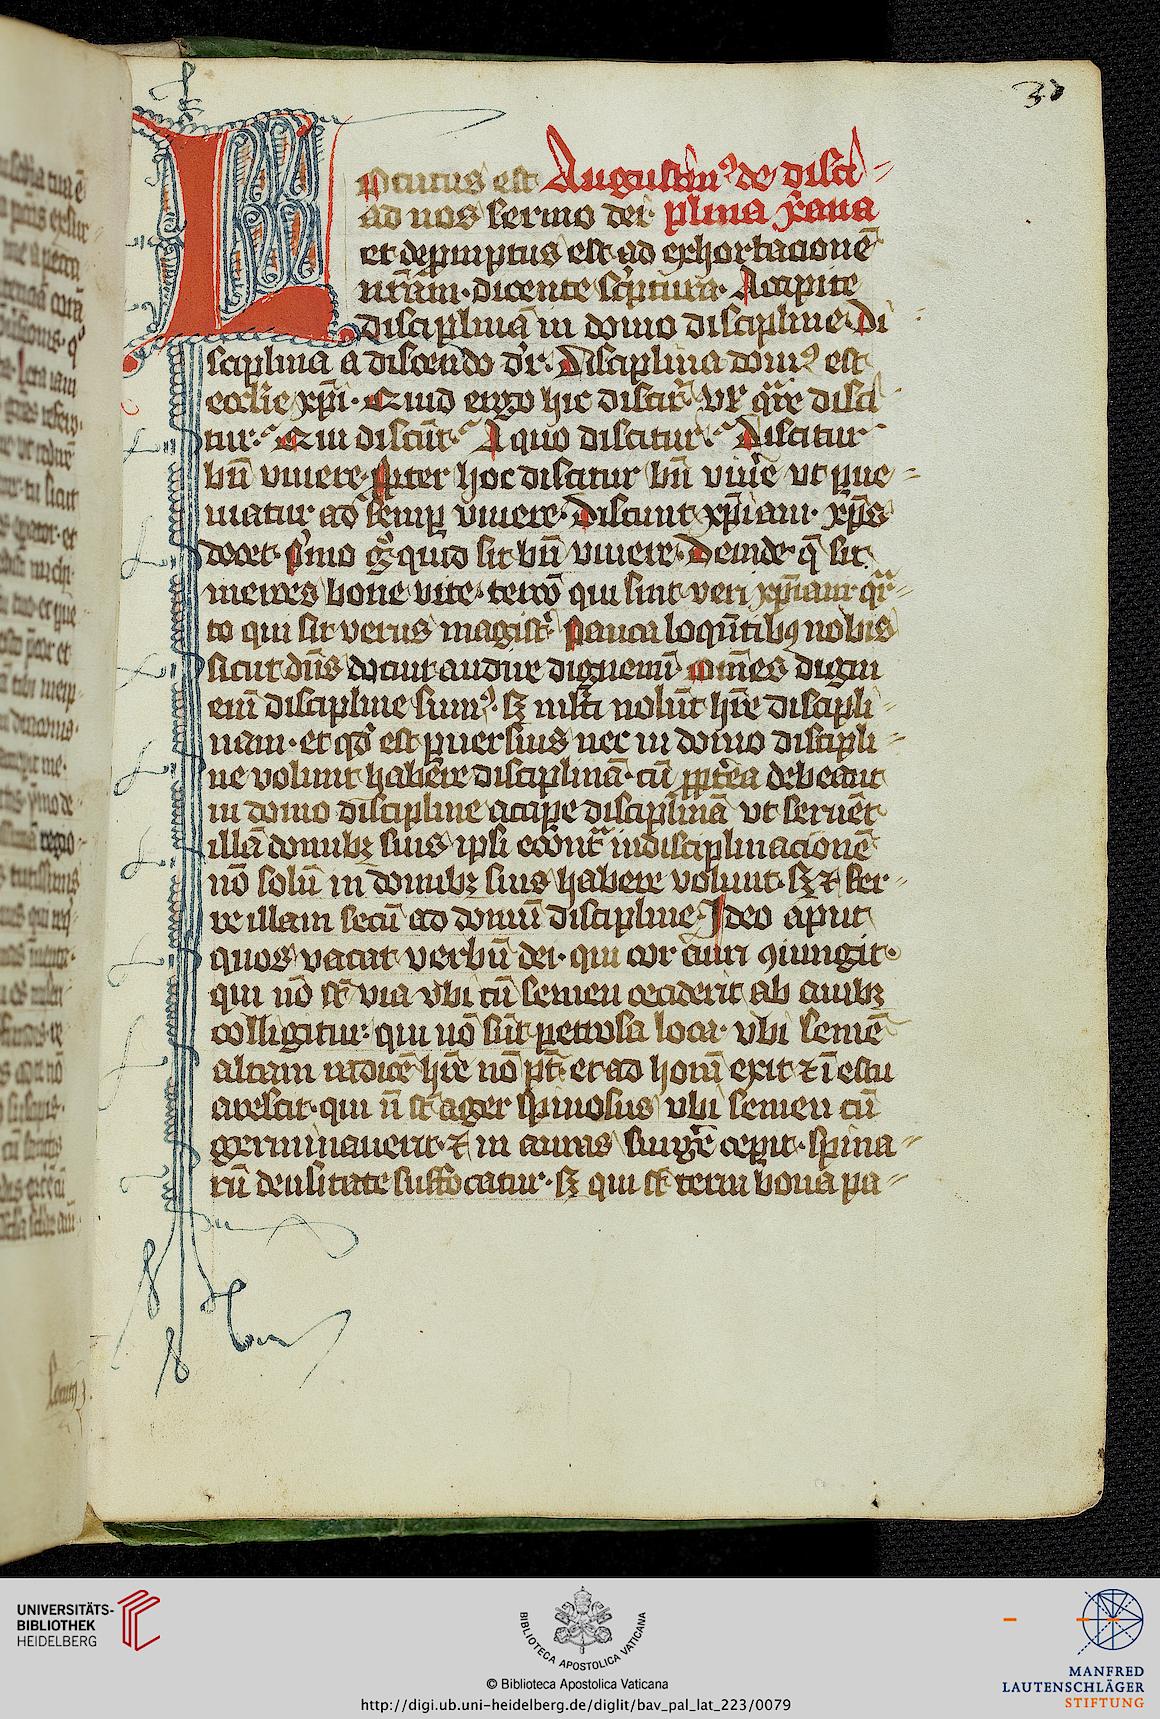 37
Locutus est Augustin⁹ de disci
ad nos sermo dei· plina xp̄iana
et depmptus est ad exhortacionē
nr̄am· dicente sc̓ptura· Accipite
disciplinā in domo discipline· Di
sciplina a discendo dr̄· Disciplina dom⁹ est
ecclīe xp̄i· Quid ergo hic discit̓· Vl̓ qr̄e disci
tur· Qui discūt· A quo discitur· Discitur
bn̄ viuere· Propter hoc discitur bn̄ viu̓e vt ꝑue
niatur ad semꝑ viuere· Discunt xp̄iani· xp̄s
docet· P̓mo g̊ quid sit bn̄ viuere· Deinde q̄ sit
merces bone vite· tercō qui sint veri xp̄iani· qr̄
to qui sit verus magist̓· Pauca loquētibꝫ nobis
sicut dn̄s docuit audire dignemī· Om̄es
em̄ discipline sum⁹· sꝫ ml̓ti nolūt hr̄e discipli
nam· et qd̓ est ꝑuersius nec in domo discipli
ne volunt habere disciplinā· cū ꝓpt̓ea debeant
in domo discipline accipe disciplinā vt seruēt
illā domibꝫ suis ipsi econt̓ indisciplinacionē
nō solū in domibꝫ suis habere volunt· sꝫ ⁊ fer
re illam secū ad domū discipline· Ideo aput
quos vacat verbū dei· qui cor auri ꝯiungit·
qui nō st̄ via vbi cū semen ceciderit ab auibꝫ
colligitur· qui nō sūt petrosa loca· vbi semē
altam radicē hr̄e nō pt̄· et ad horā exit ⁊ ī estu
arescit· qui n̄ st̄ ager spinosus vbi semen cū
germinauerit· ⁊ in auras surg̓e ceperit· spina
rū densitate suffocatur· sꝫ qui st̄ terra bona pa
UNIVERSITÄTS-
BIBLIOTHEK
HEIDELBERG
BIBLIOTECA APOSTOLICA VATICANA
© Biblioteca Apostolica Vaticana
http://digi.ub.uni-heidelberg.de/diglit/bav_pal_lat_223/0079
MANFRED
LAUTENSCHLÄGER
STIFTUNG